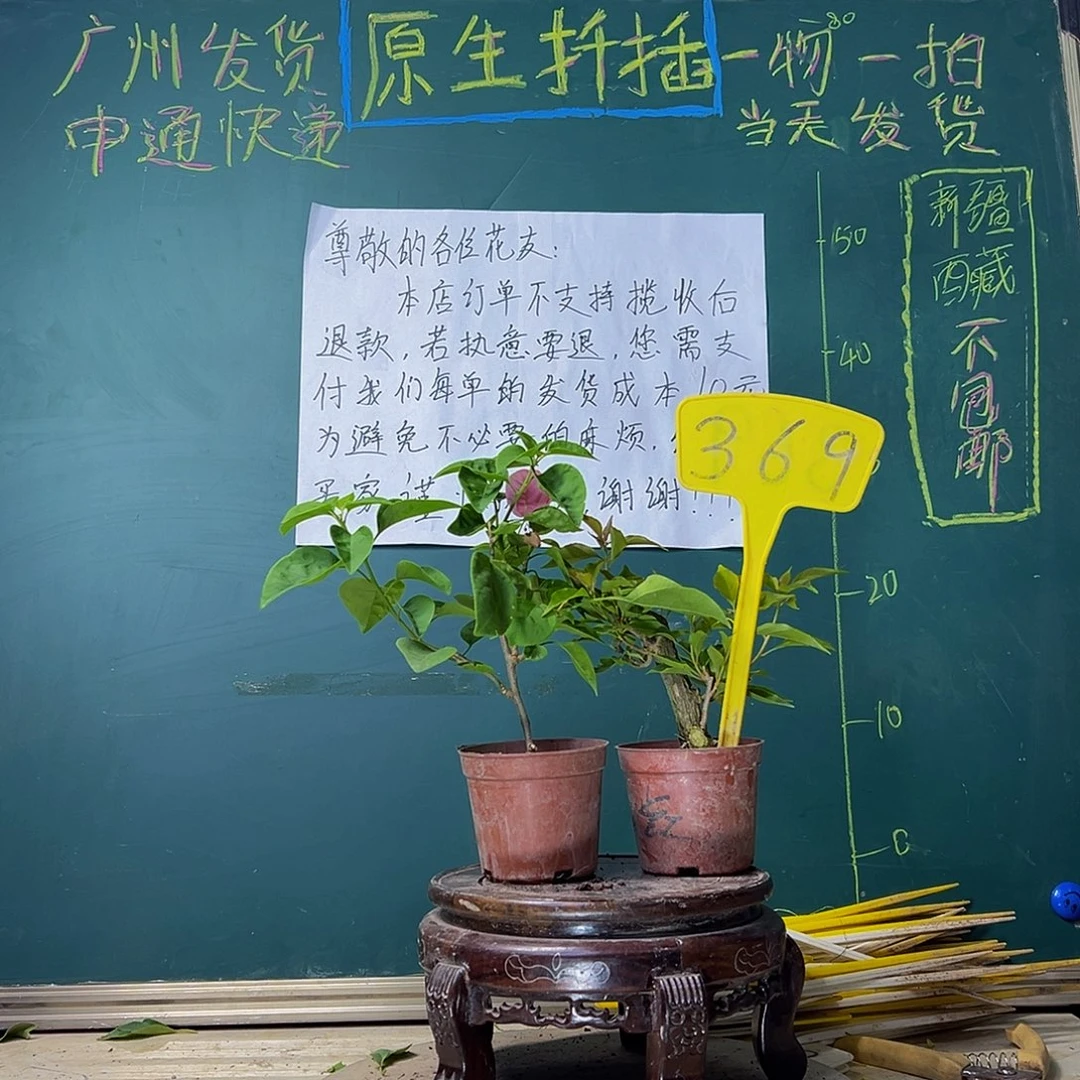 广州发货
申通快递
原生扦插
一物一拍
当天发货
80
50
40
20
10
0
新疆
西藏
不包邮
尊敬的各位花友:
本店订单不支持揽收后
退款,若执意要退,您需支
付我们每单的发货成本10元
为避免不必要的麻烦.
买家谨 谢谢!!!
369